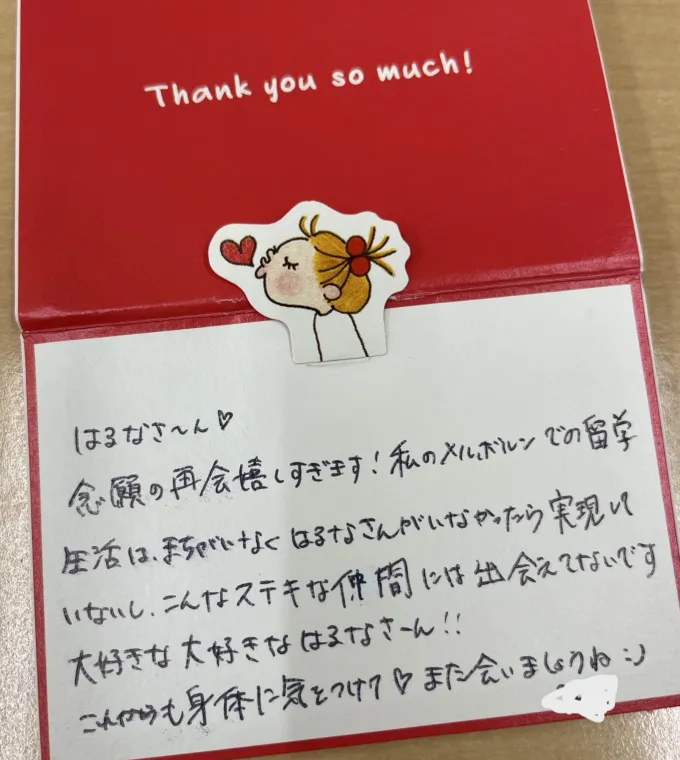 Thank you so much!
はるなさ〜ん♡
念願の再会嬉しすぎます！私のメルボルンでの留学
生活は、まちがいなくはるなさんがいなかったら実現して
いないし、こんなステキな仲間には出会えてないです
大好きな大好きなはるなさーん!!
これからも身体に気をつけて♡また会いましょうね :)